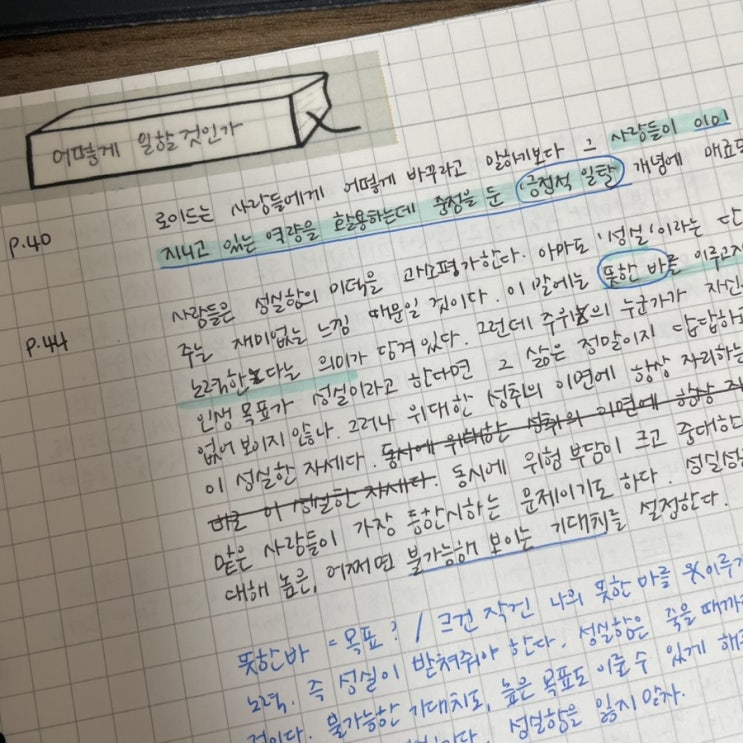 어떻게 일할 것인가
p.40
로이드는 사람들에게 어떻게 바꾸라고 말하기보다 그 사람들이 이미
지니고 있는 역량을 활용하는데 중점을 둔 긍정적 일탈 개념에 매료되
p.44
사람들은 성실함의 미덕을 과소평가한다. 아마도 '성실'이라는 단
주는 재미없는 느낌 때문일 것이다. 이 말에는 뜻한 바를 이루고자
노력한다는 의미가 담겨있다. 그런데 주위의 누군가가 자신
인생 목표가 성실이라고 한다면 그 삶은 정말이지 답답하
없어 보이지 않나. 그러나 위대한 성취의 이면에 항상 자리하는
이 성실한 자세다. 동시에 위대한 성취의 이면에 항상 자
바로 이 성실한 자세다. 동시에 위험 부담이 크고 중대한
맡은 사람들이 가장 등한시하는 문제이기도 하다. 성실성
대해 높은, 어쩌면 불가능해 보이는 기대치를 설정한다.
뜻한바 = 목표? / 크건 작건 나의 뜻한 바를 이루기
노력. 즉 성실이 받쳐줘야 한다. 성실함은 죽을 때까
것이다. 불가능한 기대치도, 높은 목표도 이룰 수 있게 해
성실함을 잃지 말자.